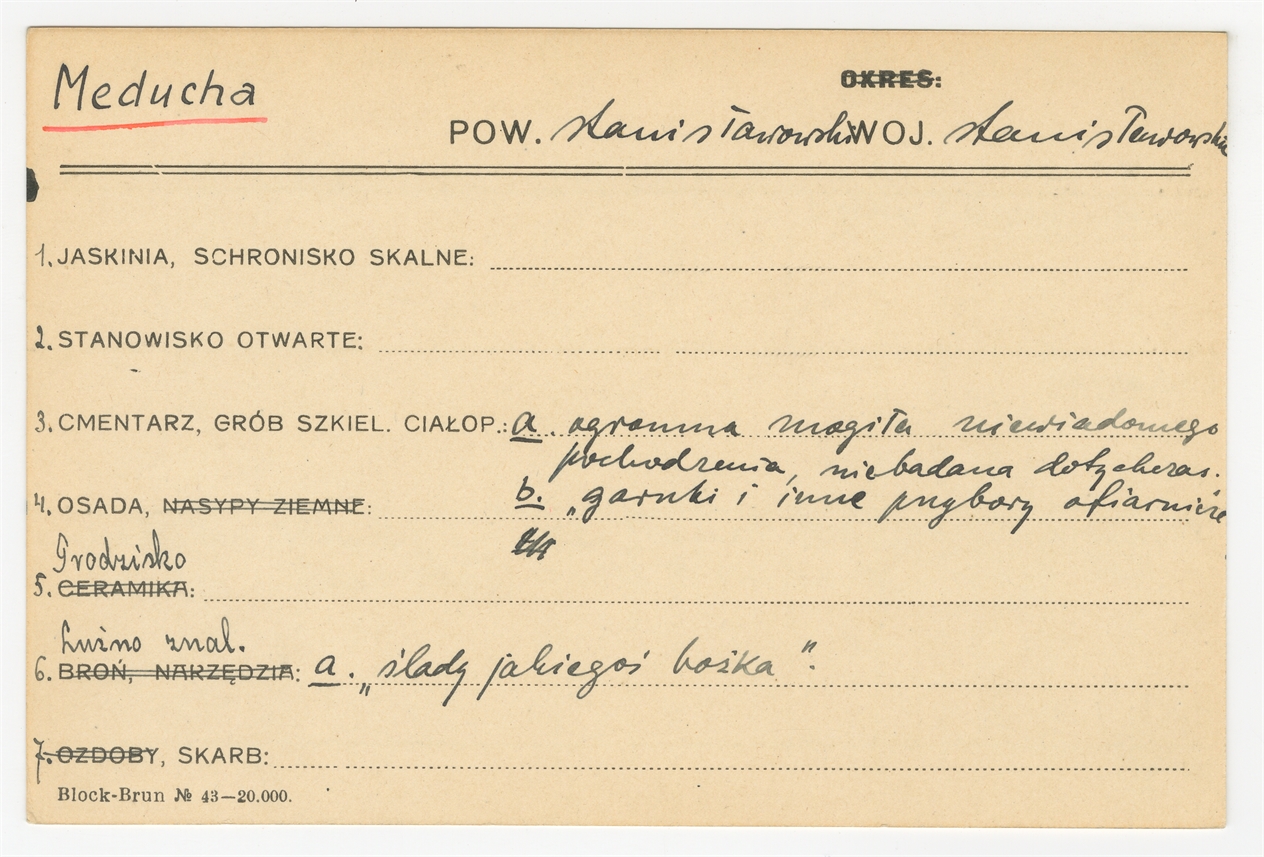 Meducha
OKRES:
POW. stanisławowski WOJ. stanisławowskie
1. JASKINIA, SCHRONISKO SKALNE:
2. STANOWISKO OTWARTE:
3. CMENTARZ, GRÓB SZKIEL. CIAŁOP.: a. ogromna mogiła niewiadomego
pochodzenia, niebadana dotychczas.
4. OSADA, NASYPY ZIEMNE: b. „garnki i inne przybory ofiarnicze
Grodzisko
5. CERAMIKA:
Luźno znal.
6. BROŃ, NARZĘDZIA: a. „ślady jakiegoś bożka".
7. OZDOBY, SKARB:
Block-Brun № 43—20.000.